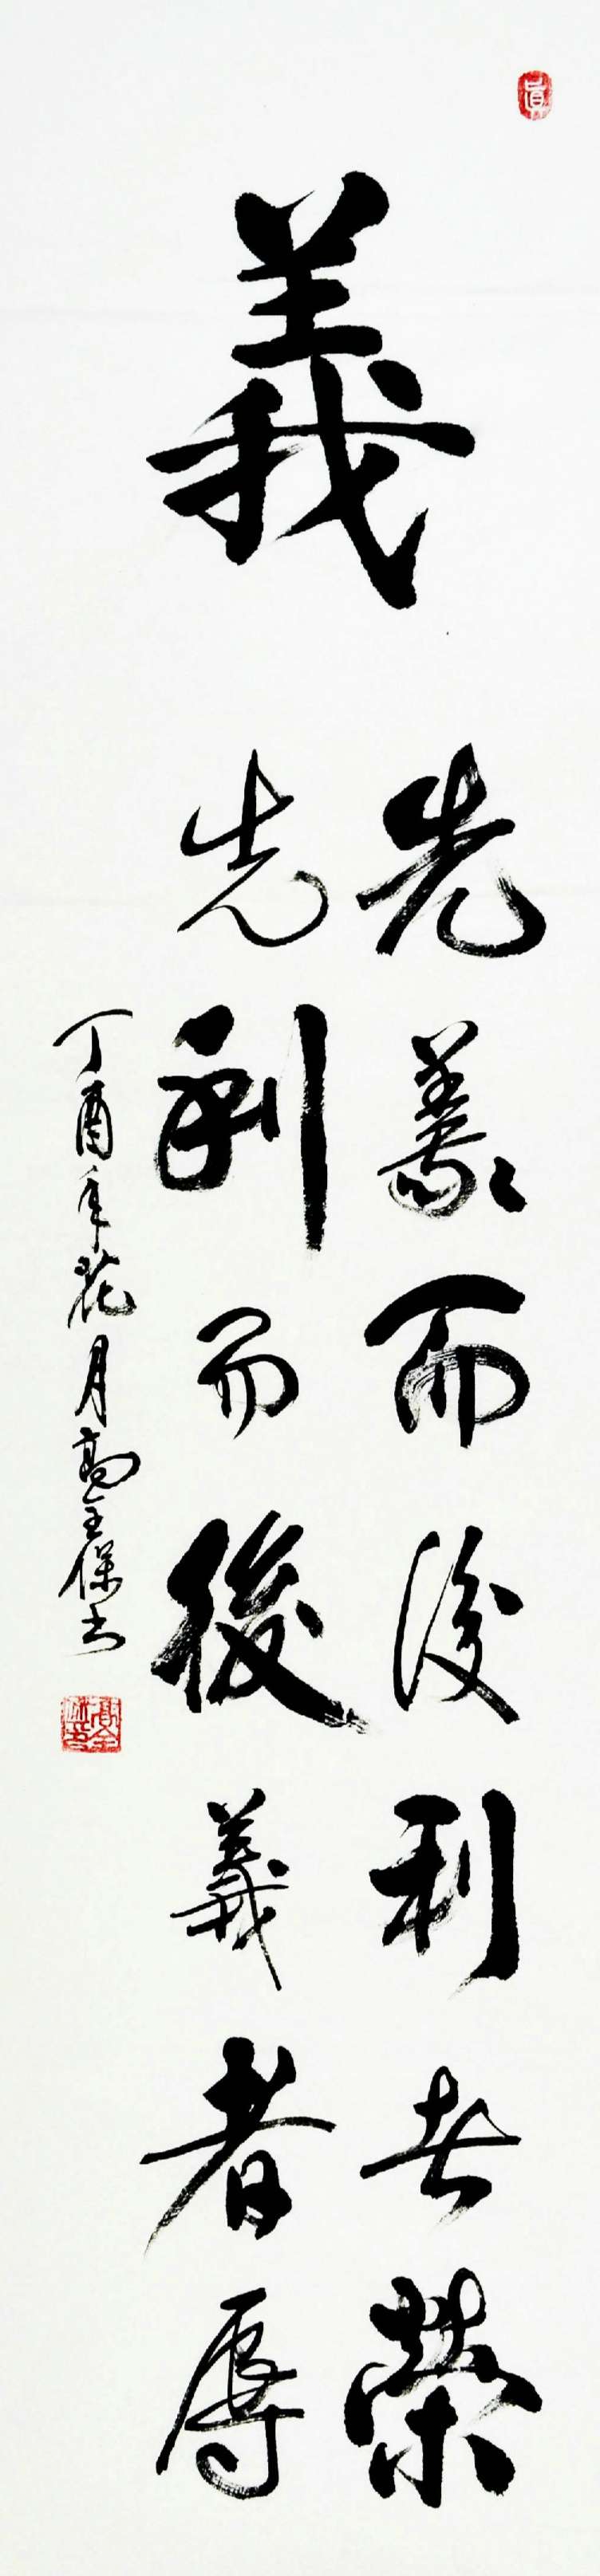 真
義
先義而後利者榮
先利而後義者辱
丁酉年花月高全保书